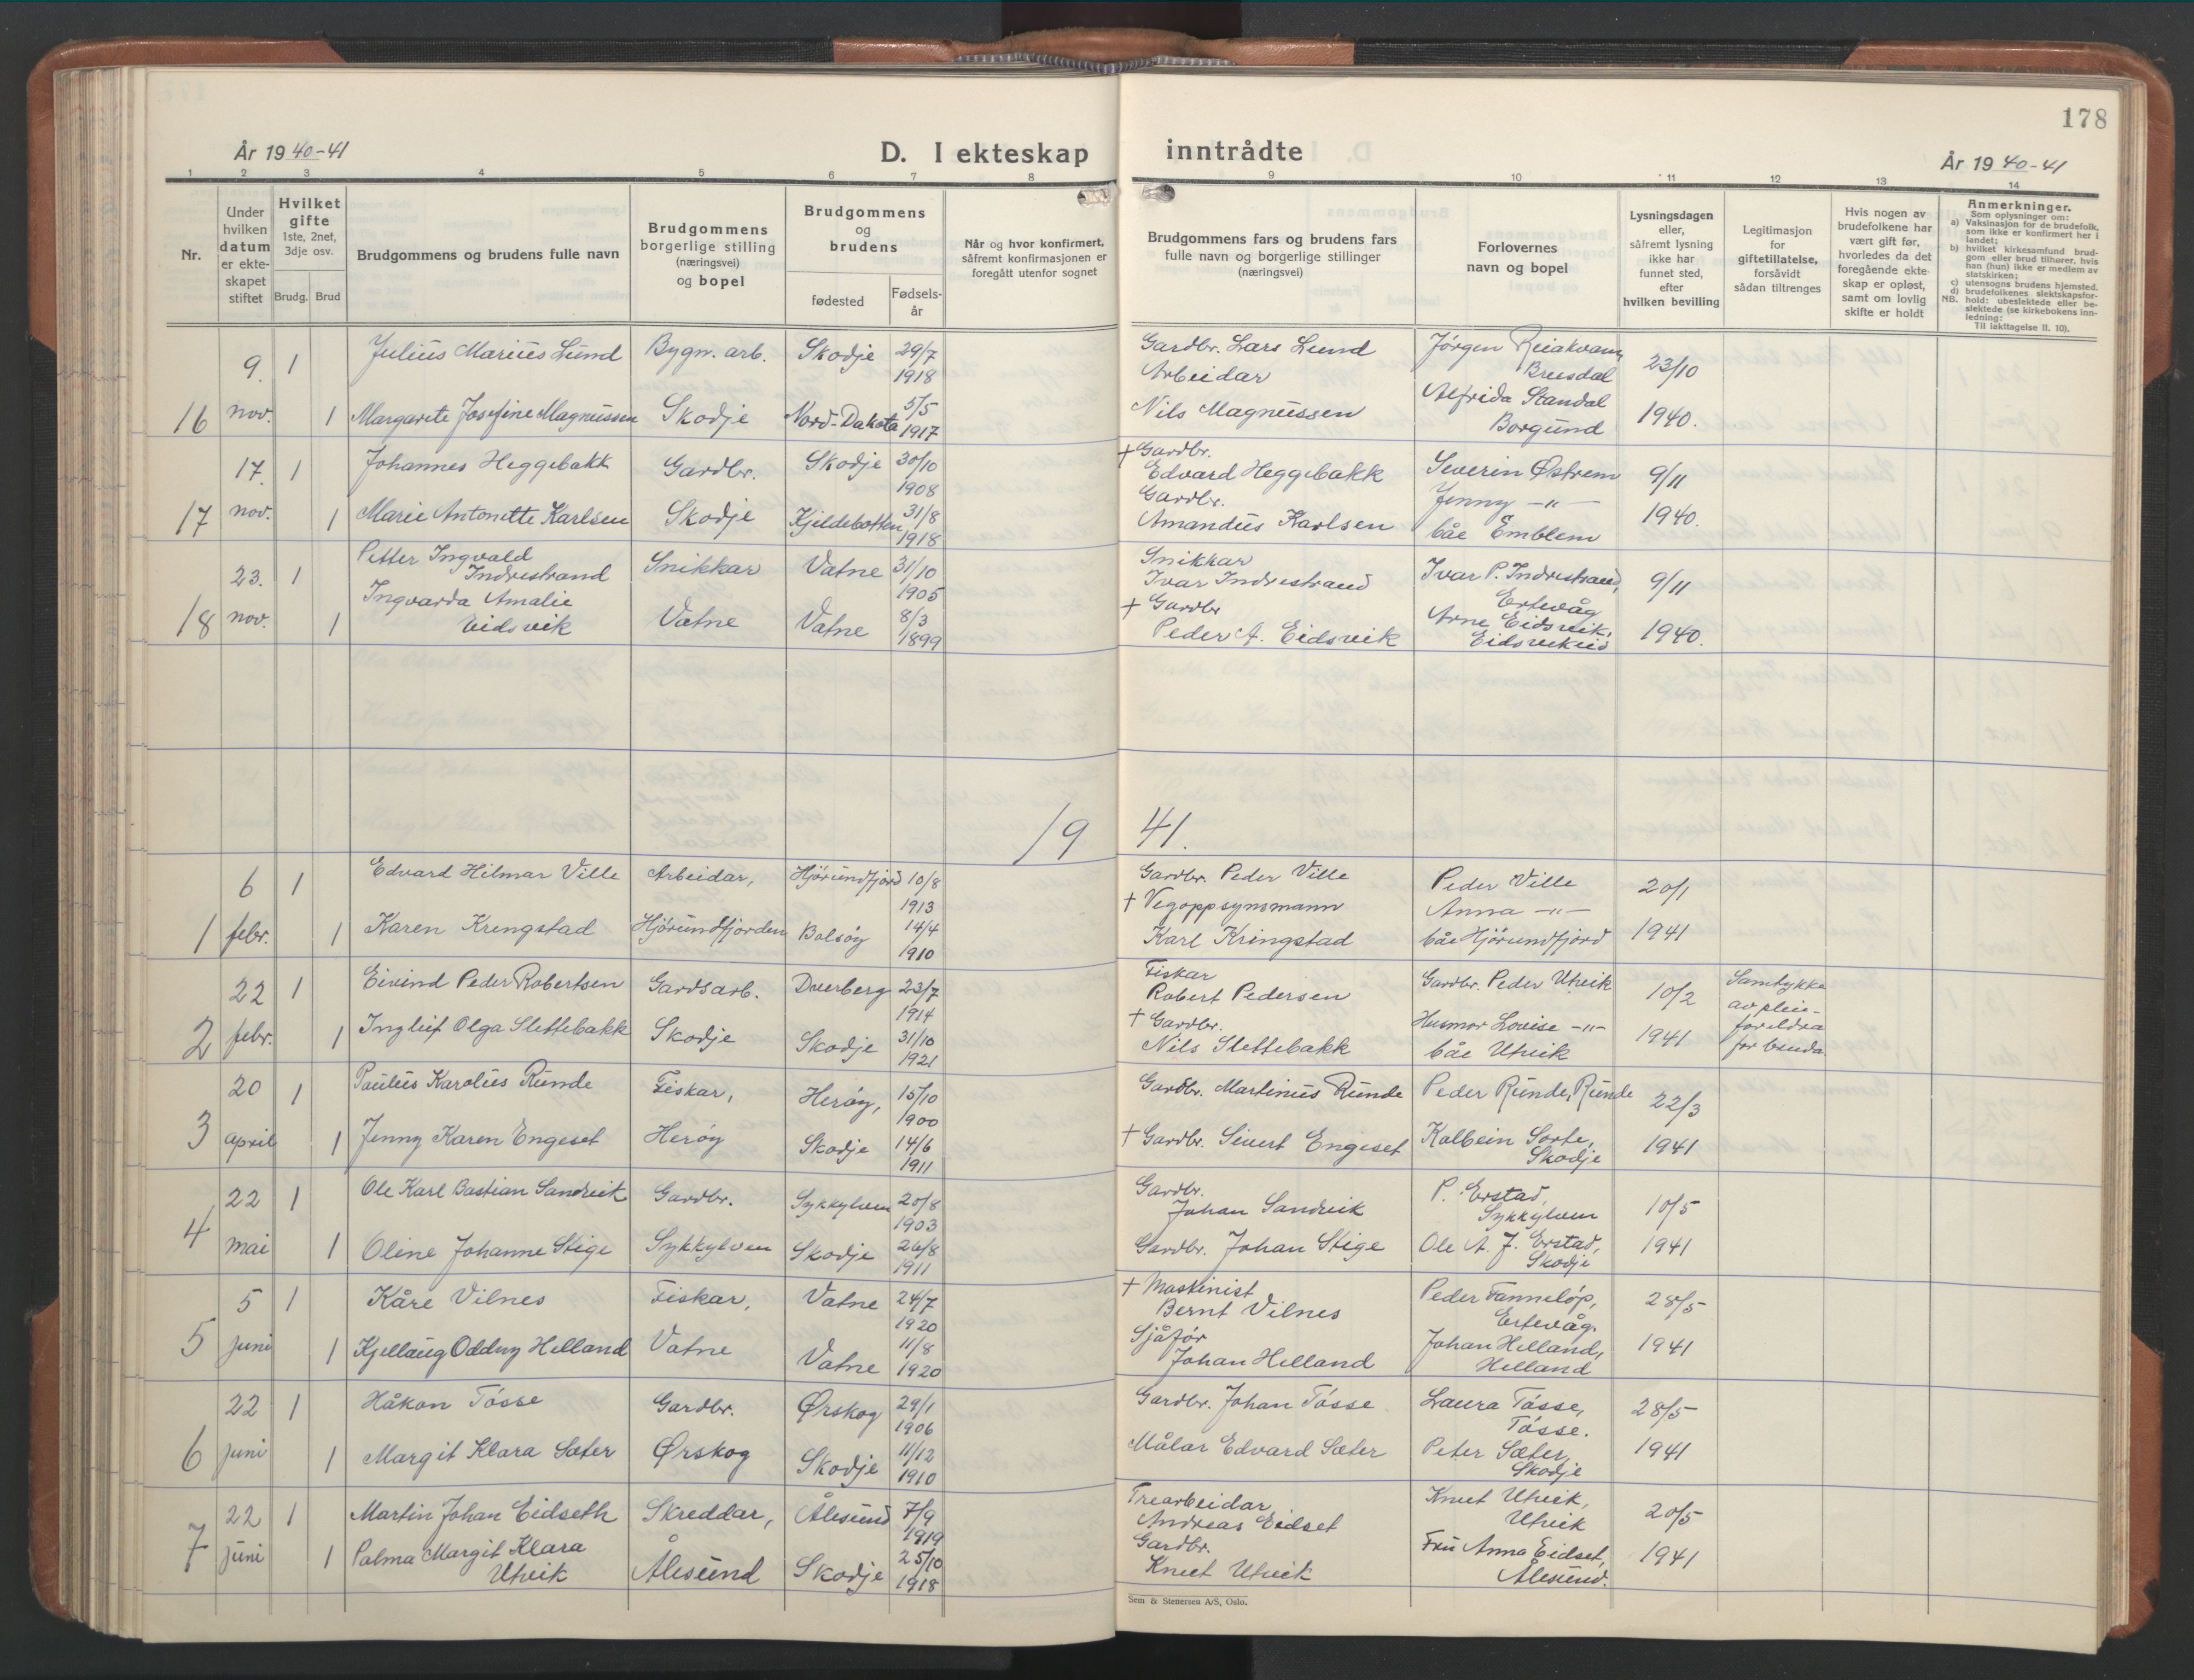 178
År 1940-41
D. I ekteskap inntrådte
År 1940-41
1 2 3 4 5 6 7 8 9 10 11 12 13 14
Nr.
Under hvilken datum er ekteskapet stiftet
Hvilket gifte
1ste, 2net, 3dje osv.
Brudg. Brud
Brudgommens og brudens fulle navn
Brudgommens borgerlige stilling (næringsvei) og bopel
Brudgommens og brudens
fødested
Fødselsår
Når og hvor konfirmert, såfremt konfirmasjonen er foregått utenfor sognet
Brudgommens fars og brudens fars fulle navn og borgerlige stillinger (næringsvei)
Forlovernes navn og bopel
Lysningsdagen eller, såfremt lysning ikke har funnet sted, efter hvilken bevilling
Legitimasjon for giftetillatelse, forsåvidt sådan tiltrenges
Hvis nogen av brudefolkene har vært gift før, hvorledes da det foregående ekteskap er opløst, samt om lovlig skifte er holdt
Anmerkninger.
Som oplysninger om:
a) Vaksinasjon for de brudefolk, som ikke er konfirmert her i landet;
b) hvilket kirkesamfund brudgom eller brud tilhører, hvis han (hun) ikke er medlem av statskirken;
c) utensogns brudens hjemsted.
d) brudefolkenes slektskapsforhold: ubeslektede eller beslektede (se kirkebokens innledning:
NB.
Til iakttagelse II. 10).
9. 1 Julius Marius Lund Bygn. arb. Skodje 29/7 1918 Gardbr. Lars Lund Jørgen Reiakvam, Brusdal 23/10
16 nov. 1 Margarete Josefine Magnussen Skodje Nord-Dakota 5/5 1917 Arbeidar Nils Magnussen Alfrida Standal Borgund 1940.
17. 1 Johannes Heggebakk Gardbr. Skodje 30/10 1908 + Gardbr. Edvard Heggebakk Severin Østrem 9/11
17 nov. 1 Marie Antonette Karlsen Skodje Kjildebotten 31/8 1918 Gardbr. Amandus Karlsen Jenny -"- båe Emblem 1940.
23. 1 Petter Ingvald Indrestrand Snikkar Vatne 31/10 1905 Snikkar Ivar Indrestrand Ivar P. Indrestrand, Ertevåg 9/11
18 nov. 1 Ingvarda Amalie Eidsvik Vatne Vatne 8/3 1899 + Gardbr Peder A. Eidsvik Arne Eidsvik, Eidsvikeid 1940.
19 41.
6 1 Edvard Hilmar Ville Arbeidar, Hjørundfjord 10/8 1913 Gardbr. Peder Ville Peder Ville 20/1
1 febr. 1 Karen Kringstad Hjørundfjorden Bolsøy 14/4 1910 + Vegoppsynsmann Karl Kringstad Anna -"- båe Hjørundfjord 1941
22 1 Eivind Peder Robertsen Gardsarb. Dverberg 23/7 1914 Fiskar Robert Pedersen Gardbr. Peder Utvik 10/2 Samtykke av pleieforeldra for bruda.
2 febr. 1 Ingleif Olga Slettebakk Skodje Skodje 31/10 1921 + Gardbr. Nils Slettebakk Husmor Lovise -"- båe Utvik 1941
20 1 Paulus Karolus Runde Fiskar, Herøy, 15/10 1900 Gardbr. Martinus Runde Peder Runde, Runde 22/3
3 april 1 Jenny Karen Engeset Herøy Skodje 14/6 1911 + Gardbr. Sivert Engeset Kolbein Sorte, Skodje 1941
22 1 Ole Karl Bastian Sandvik Gardbr. Sykkylven 20/8 1903 Gardbr. Johan Sandvik P. Erstad, Sykkylven 10/5
4 mai 1 Oline Johanne Stige Sykkylven Skodje 26/8 1911 Gardbr. Johan Stige Ole A. J. Erstad, Skodje 1941
5 1 Kåre Vilnes Fiskar, Vatne 24/7 1920 + Maskinist Bernt Vilnes Peder Fanneløp, Ertevåg. 28/5
5 juni 1 Kjellaug Oddny Helland Vatne Vatne 11/8 1920 Sjåfør Johan Helland Johan Helland, Helland 1941
22 1 Håkon Tøsse Gardbr. Ørskog 29/1 1906 Gardbr. Johan Tøsse Laura Tøsse, Tøsse. 28/5
6 juni 1 Margit Klara Sæter Ørskog Skodje 11/12 1910 Målar Edvard Sæter Peter Sæter, Skodje 1941
22 1 Martin Johan Eidseth Skreddar, Ålesund 7/9 1919 Trearbeidar Andreas Eidset Knut Utvik, Utvik 20/5
7 juni 1 Palma Margit Klara Utvik Ålesund Skodje 25/10 1918 Gardbr. Knut Utvik Fru Anna Eidset, Ålesund. 1941
Sem & Stenersen A/S, Oslo.